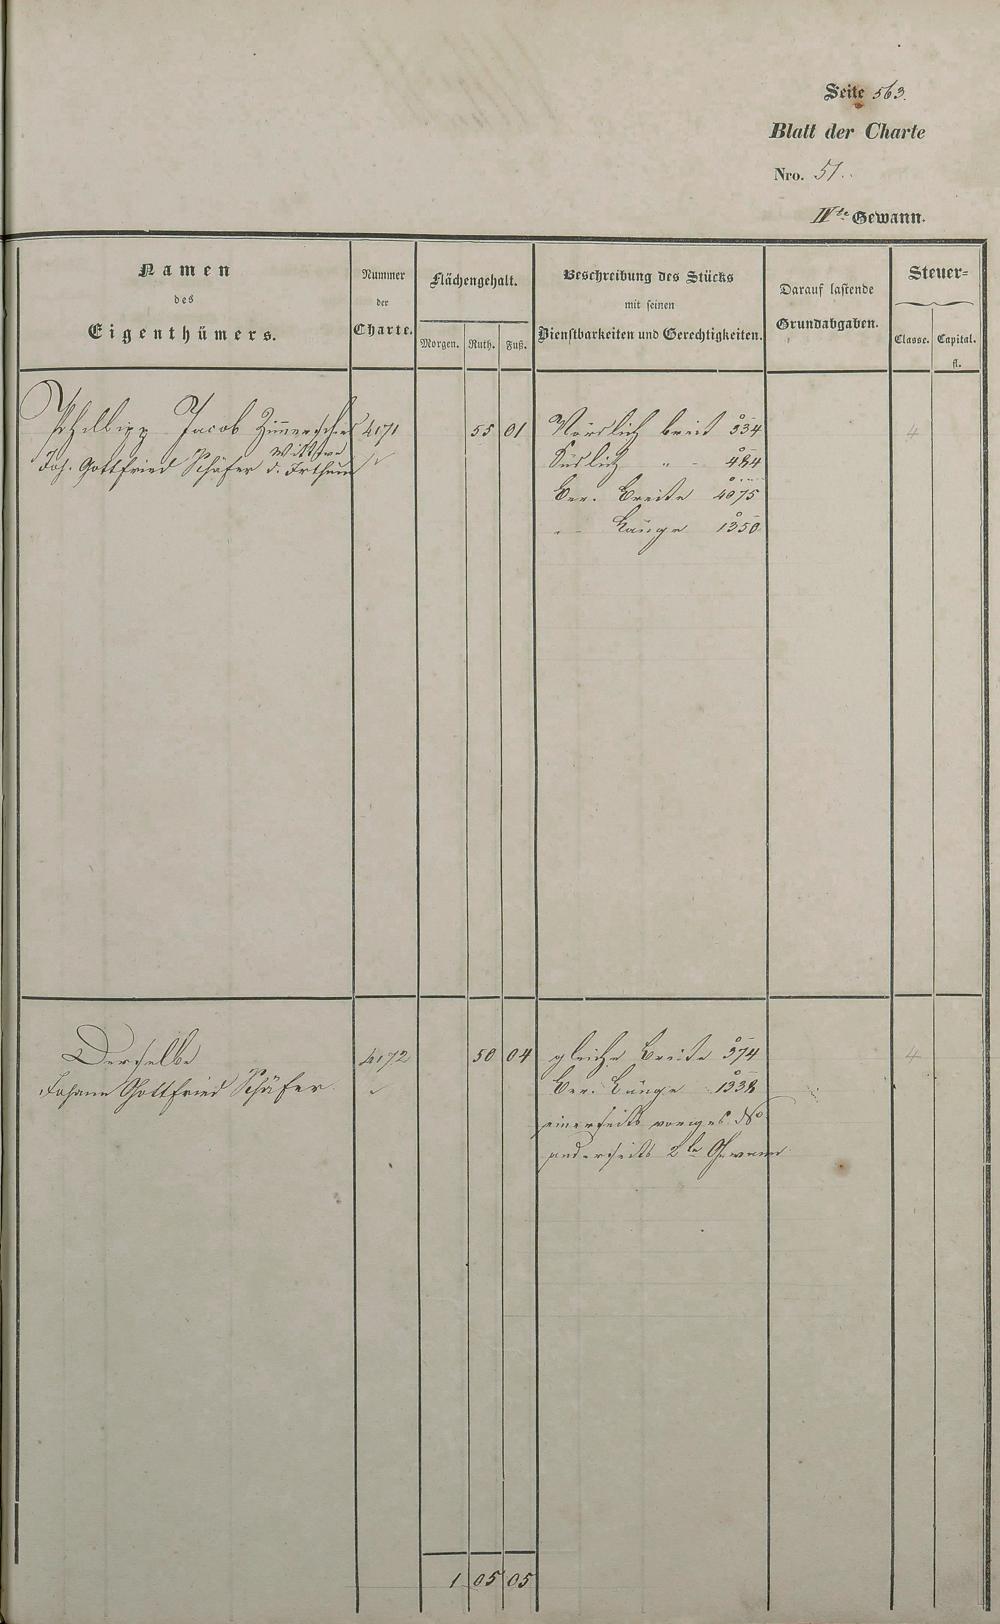 Seite 563.
Blatt der Charte
Nro. 51.
IVte Gewann.
Namen
des
Eigenthümers.
Nummer
der
Charte.
Flächengehalt.
Morgen. Ruth. Fuß.
Beschreibung des Stücks
mit seinen
Dienstbarkeiten und Gerechtigkeiten.
Darauf lastende
Grundabgaben.
Steuer-
Classe. Capital.
fl.
Philipp Jacob 4171 55 01 Nördlich breit 334 4
Wittwe
Joh. Gottfried Schäfer Südlich " - 484
Ber. Breite 4075
" Länge 1350
Derselbe 4172 50 04 gleiche Breite 374 4
Johann Gottfried Schäfer Ber. Länge 1338
einerseits voriges
anderseits 2te Gewann
1 05 05